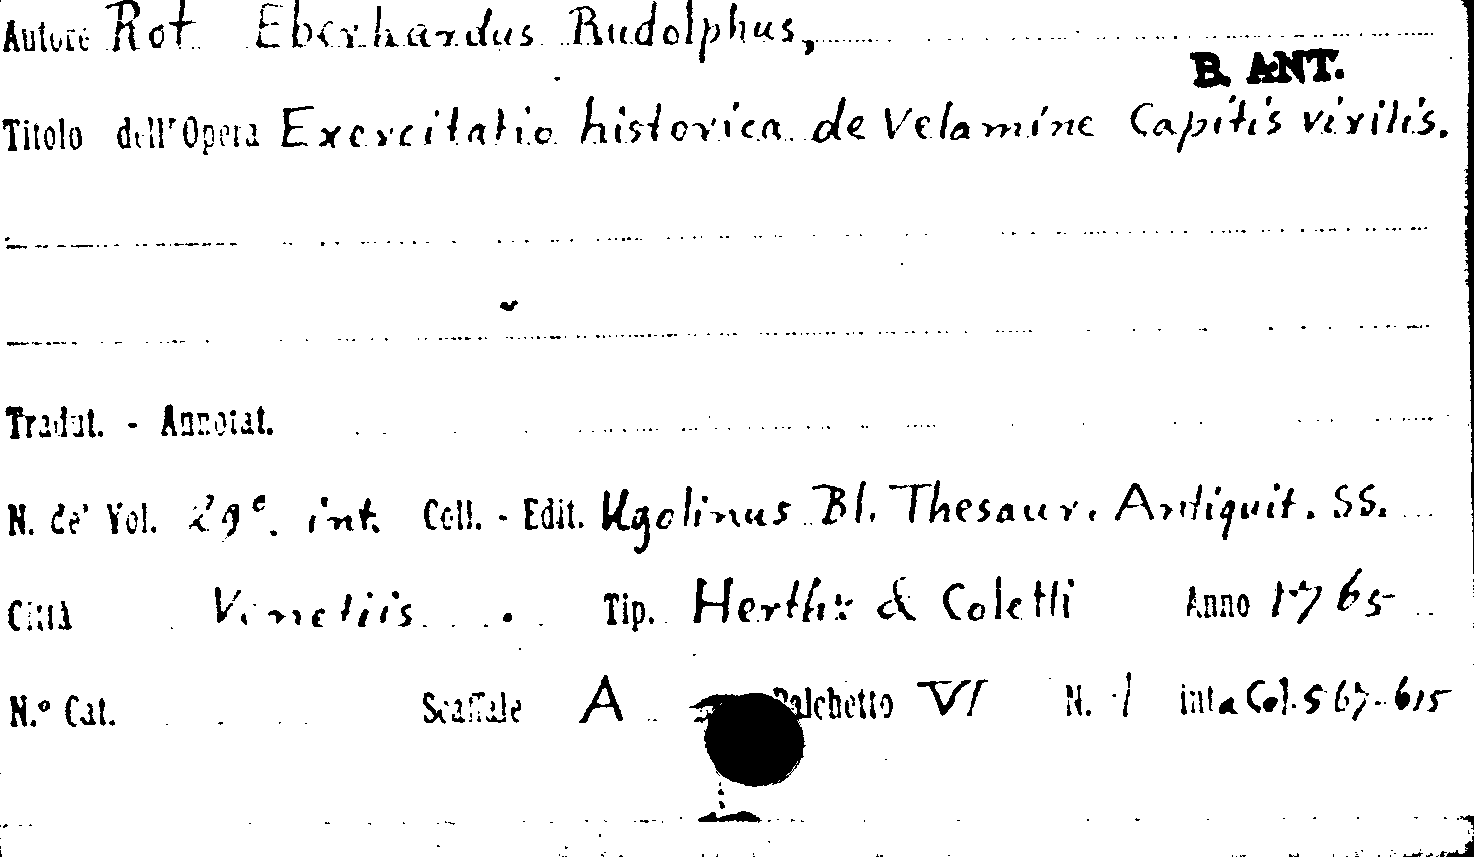 Autore Rot Eberhardus Rudolphus,
B. ANT.
Titolo dell'Opera Exercitatio historica de Velamine Capitis virilis.
Tradut. - Annotat.
N. de' Vol. 29°. int. Coll. - Edit. Ugolinus Bl. Thesaur. Antiquit. SS.
Città Venetiis. Tip. Herthz & Coletti Anno 1765
N.° Cat. Scaffale A Palchetto VI N. 1 int a Col. 567-615